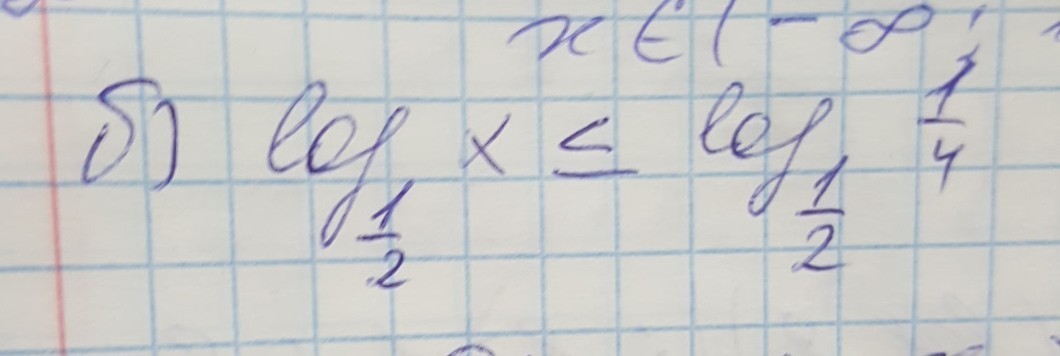 x ∈ (-∞;
б) log_{1/2} x ≤ log_{1/2} 1/4